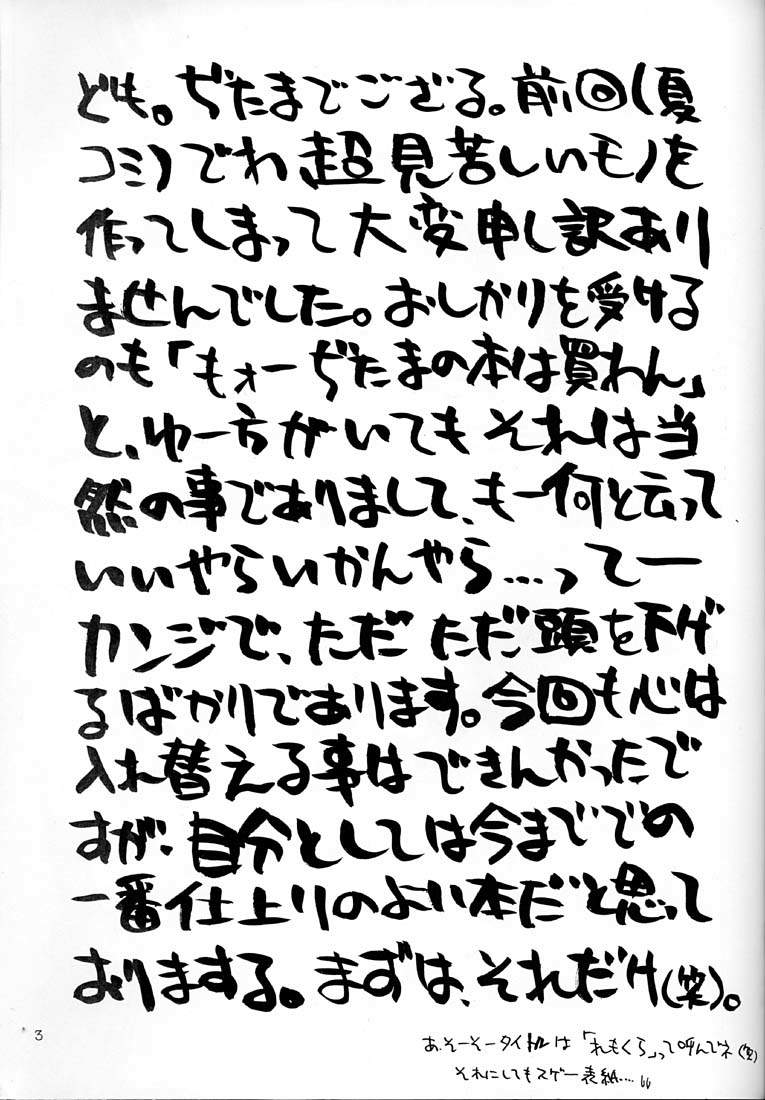 ども。ぢたまでござる。前回(夏
コミ)でわ超見苦しいモノを
作ってしまって大変申し訳あり
ませんでした。おしかりを受ける
のも「もォーぢたまの本は買わん」
と、ゆー方がいてもそれは当
然の事でありまして、も一何と云って
いいやらいかんやら…って一
カンジで、ただただ頭を下げ
るばかりであります。今回も心は
入れ替える事はできんかったで
すが、自分としては今までで の
一番仕上りのよい本だと思って
おりまする。まずは、それだけ(笑)。
あ、そーそータイトルは「れもくら」って呼んでネ(笑)
それにしてもスゲー表紙….
3